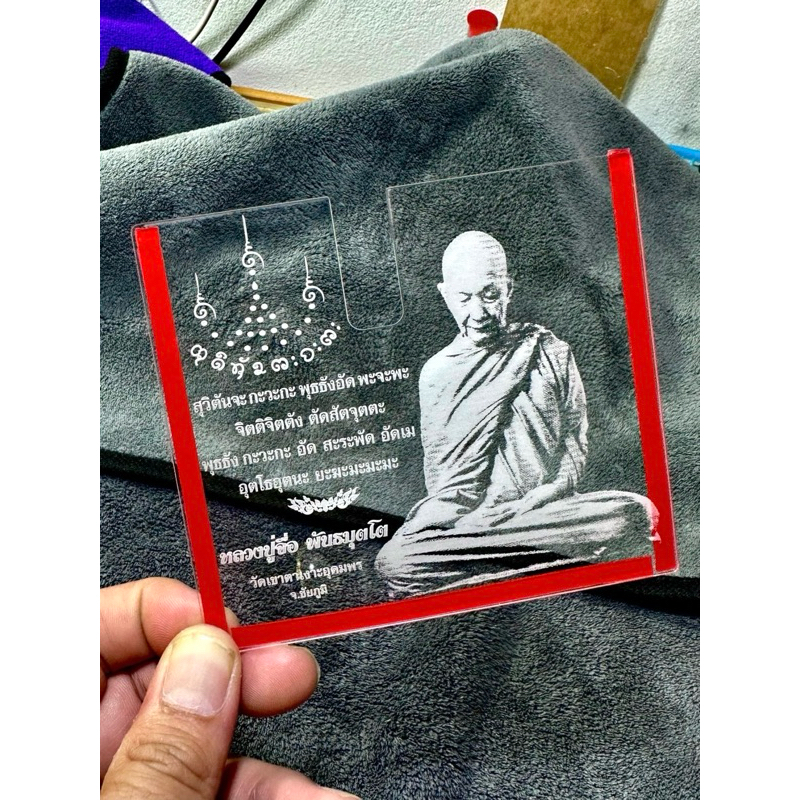 สุวิตันจะ กะวะกะ พุธธังอัด พะจะพะ
จิตติจิตตัง ตัดสัตจุตตะ
พุธธัง กะวะกะ อัด สะระพัด อัดเม
อุตโธอุตนะ ยะฆะมะมะมะ
หลวงปู่จื่อ พันธมุตโต
วัดเขาตาเงาะอุดมพร
จ.ชัยภูมิ